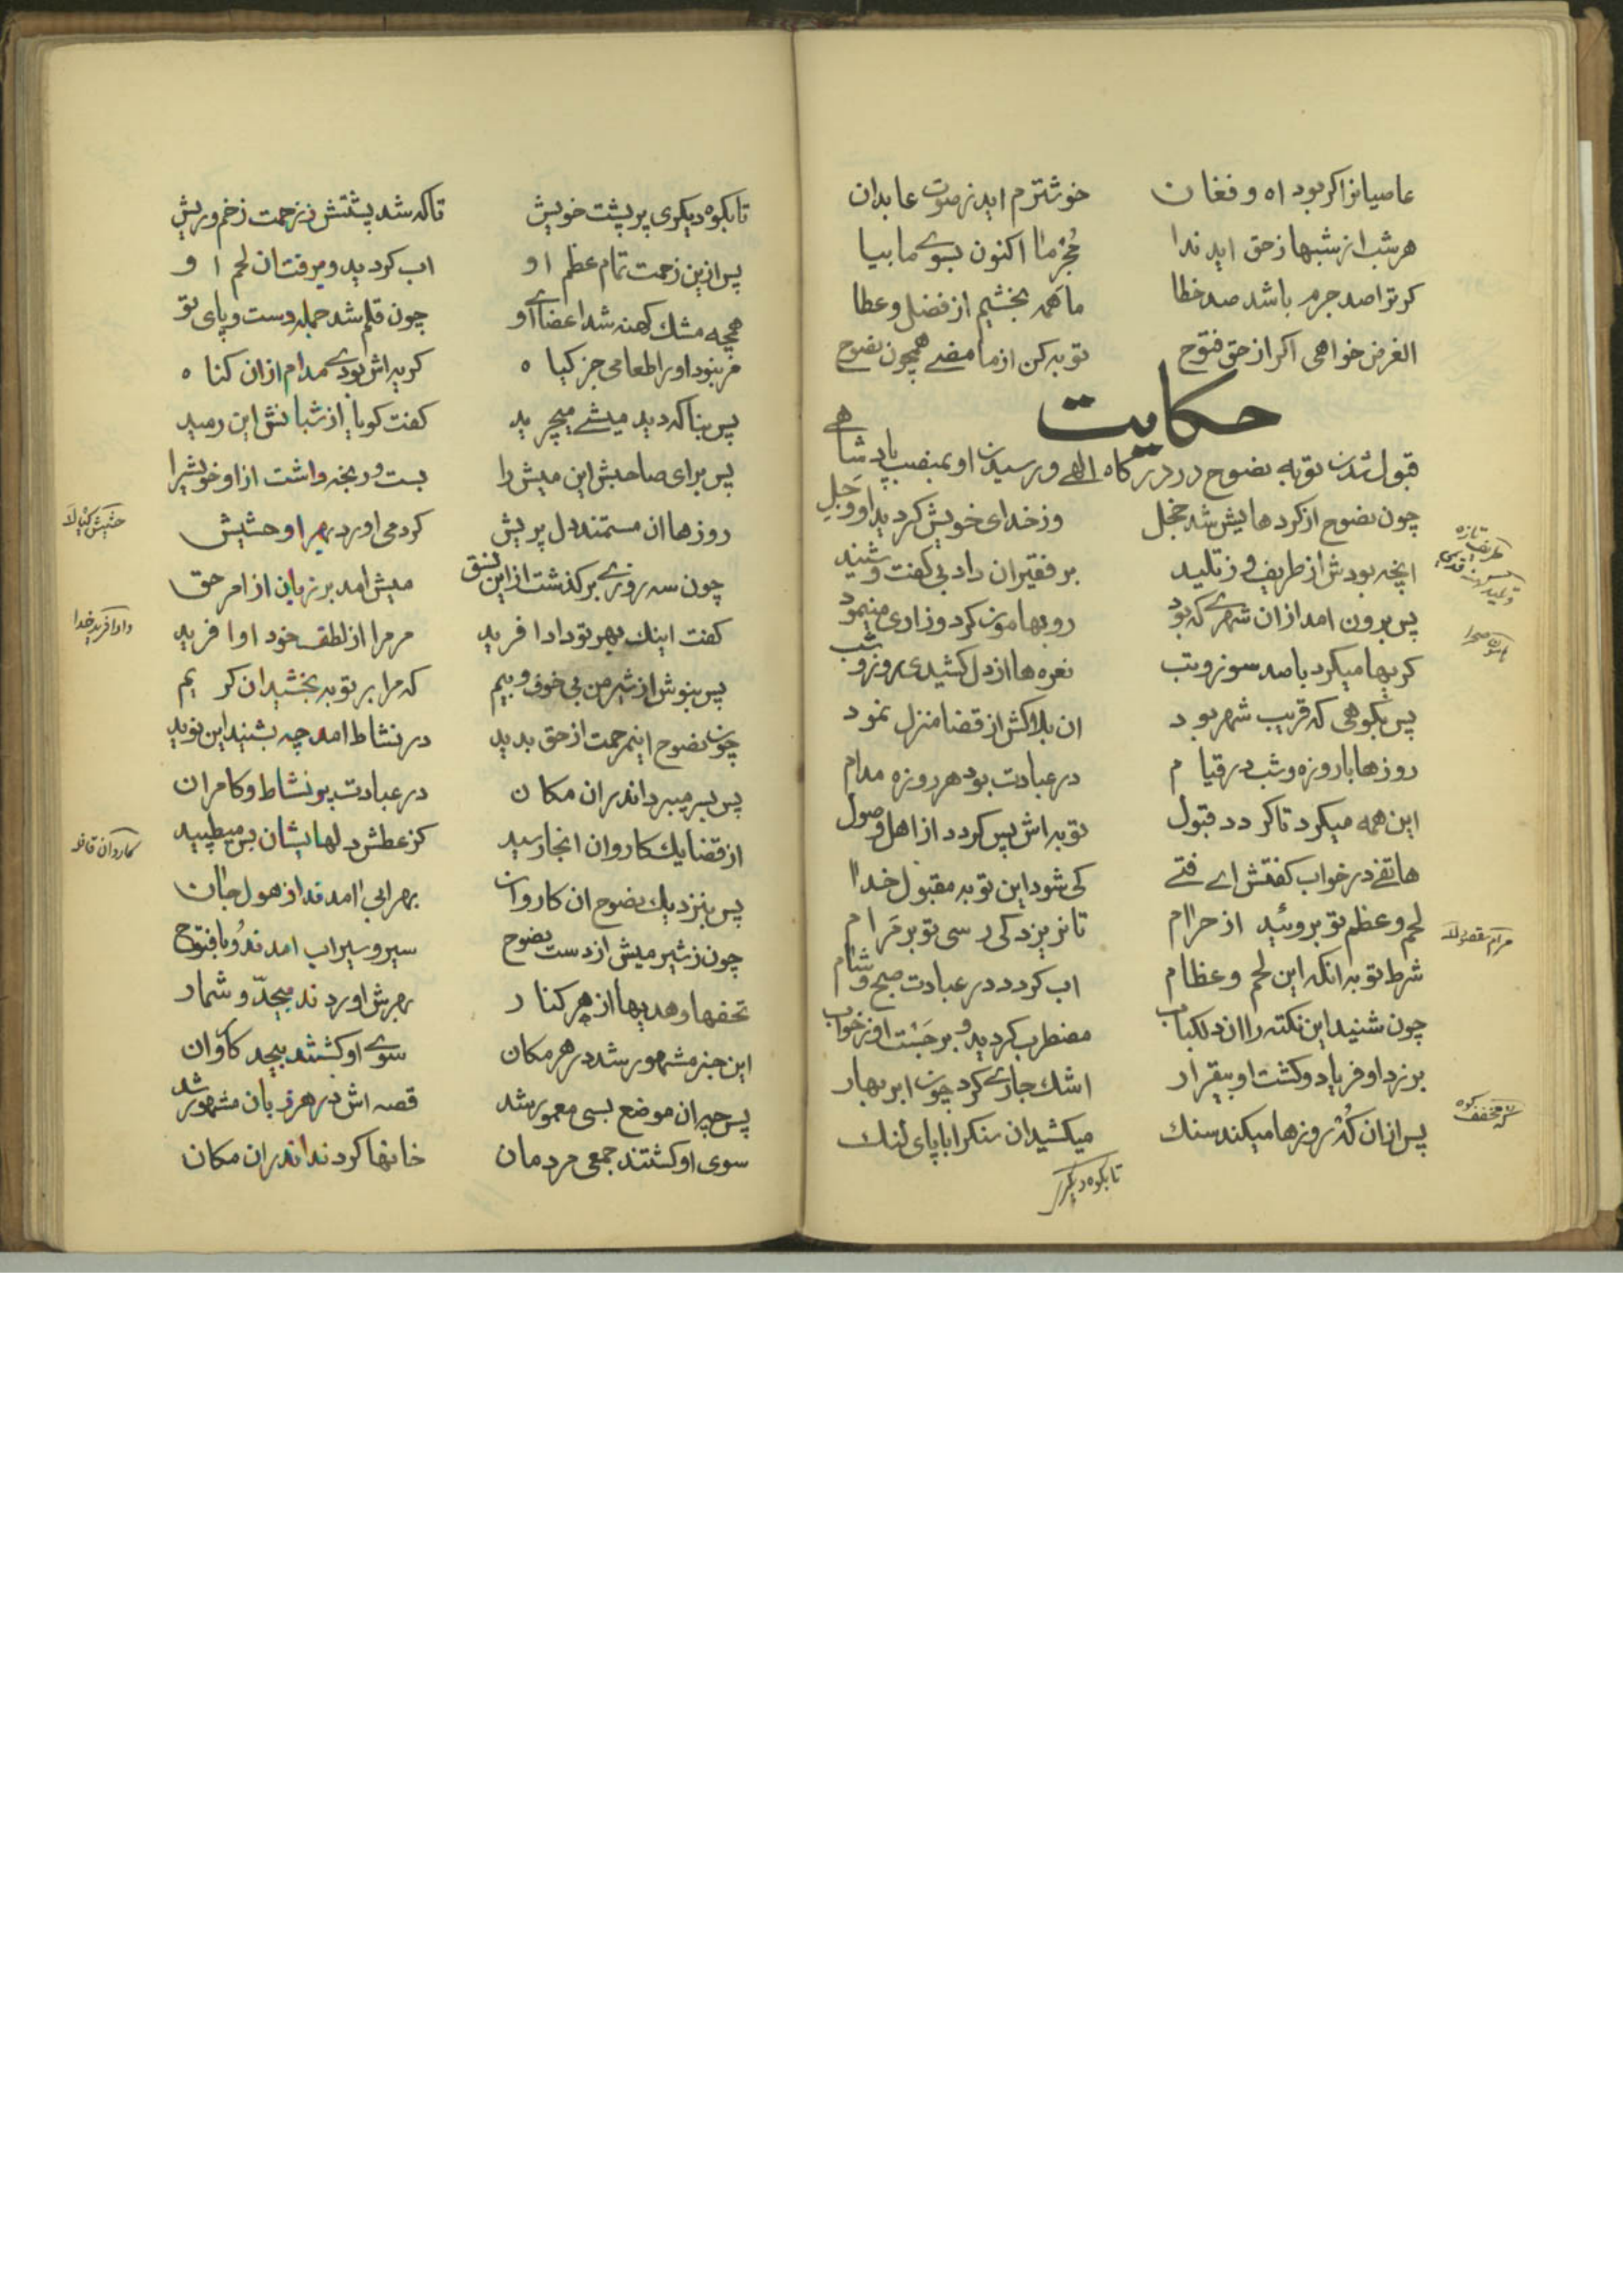 عاصیانرا کر بود اه و فغان خوشترم اید ز صوت عابدان
هر شب از شبها ز حق اید ندا مجرما اکنون بسوے ما بیا
کر ترا صد جرم باشد صد خطا ما همه بخشیم از فضل و عطا
الغرض خواهی اکر از حق فتوح توبه کن از ما مضے همچون نصوح
حکایت
قبول شدن توبه نصوح در درکاه الهے و رسیدن او بمنصب پادشاهے
چون نصوح از کردهایش شد خجل وز خدای خویش کردید او وجل
انچه بودش از طریف و ز تلید بر فقیران داد بی کفت و شنید
پس برون امد از ان شهرے که بود رو بهامون کرد و زاری مینمود
کریها میکرد با صد سوز و تب نعره ها از دل کشیدی روز و شب
پس بکوهی که قریب شهر بود ان بلاکش از قضا منزل نمود
روزها با روزه و شب در قیام در عبادت بود هر روزه مدام
این همه میکرد تا کردد قبول توبه اش پس کردد از اهل وصول
هاتفے در خواب کفتش اے فتے کی شود این توبه مقبول خدا
لحم و عظم تو بروئید از حرام تا نریزد کی رسی تو بر مرام
شرط توبه انکه این لحم و عظام اب کردد در عبادت صبح و شام
چون شنید این نکته را ان دلکباب مضطرب کردید و بر جست او ز خواب
بر زد او فریاد و کشت او بیقرار اشك جارے کرد چون ابر بهار
پس از ان که روزها میکند سنك میکشید ان سنکرا با پای لنك
تا بکوه دیکر
تازه
طریف
تلید
هامون صحرا
مرام مقصود
که مخفف کوه
تا بکوه دیکری بر پشت خویش تا که شد پشتش ز زحمت زخم و ریش
پس ازین زحمت تمام عظم او اب کردید و برفت ان لحم او
همچه مشك کهنه شد اعضاے او چون قلم شد جمله دست و پای تو
مر نبود او را طعامی جز کیاه کریه اش بودے مدام از ان کناه
پس بناکه دید میشے میچرید کفت کویا از شبانش این رمید
پس برای صاحبش این میش را بست و رنجه داشت از او خویشرا
روزها ان مستمند دل پریش کرد می اورد بهر او حشیش
چون سه روزے بر کذشت از این نسق میش امد بر زبان از امر حق
کفت اینك بهر تو داد افرید مر مرا از لطف خود او افرید
پس بنوش از شیر من بی خوف و بیم که مرا بر تو ببخشید ان کریم
چون نصوح اینمرحمت از حق بدید در نشاط امد چه بشنید این نوید
پس بسر میبرد اندر ان مکان در عبادت بو نشاط و کامران
از قضا یك کاروان انجا رسید کز عطش دلهایشان بس میطپید
پس بنزدیك نصوح ان کاروان بهر ابی امدند از هول جان
چون ز شیر میش از دست نصوح سیر و سیراب امدند و با فتوح
تحفها و هدیها از هر کنار بهرش اوردند بیحد و شمار
این خبر مشهور شد در هر مکان سوے او کشتند بیحد کاروان
پس چه ان موضع بسی معمور شد قصه اش در هر زبان مشهور شد
سوی او کشتند جمعی مردمان خانها کردند اندر ان مکان
حشیش کیاه
دادافرید خدا
کاروان قافله